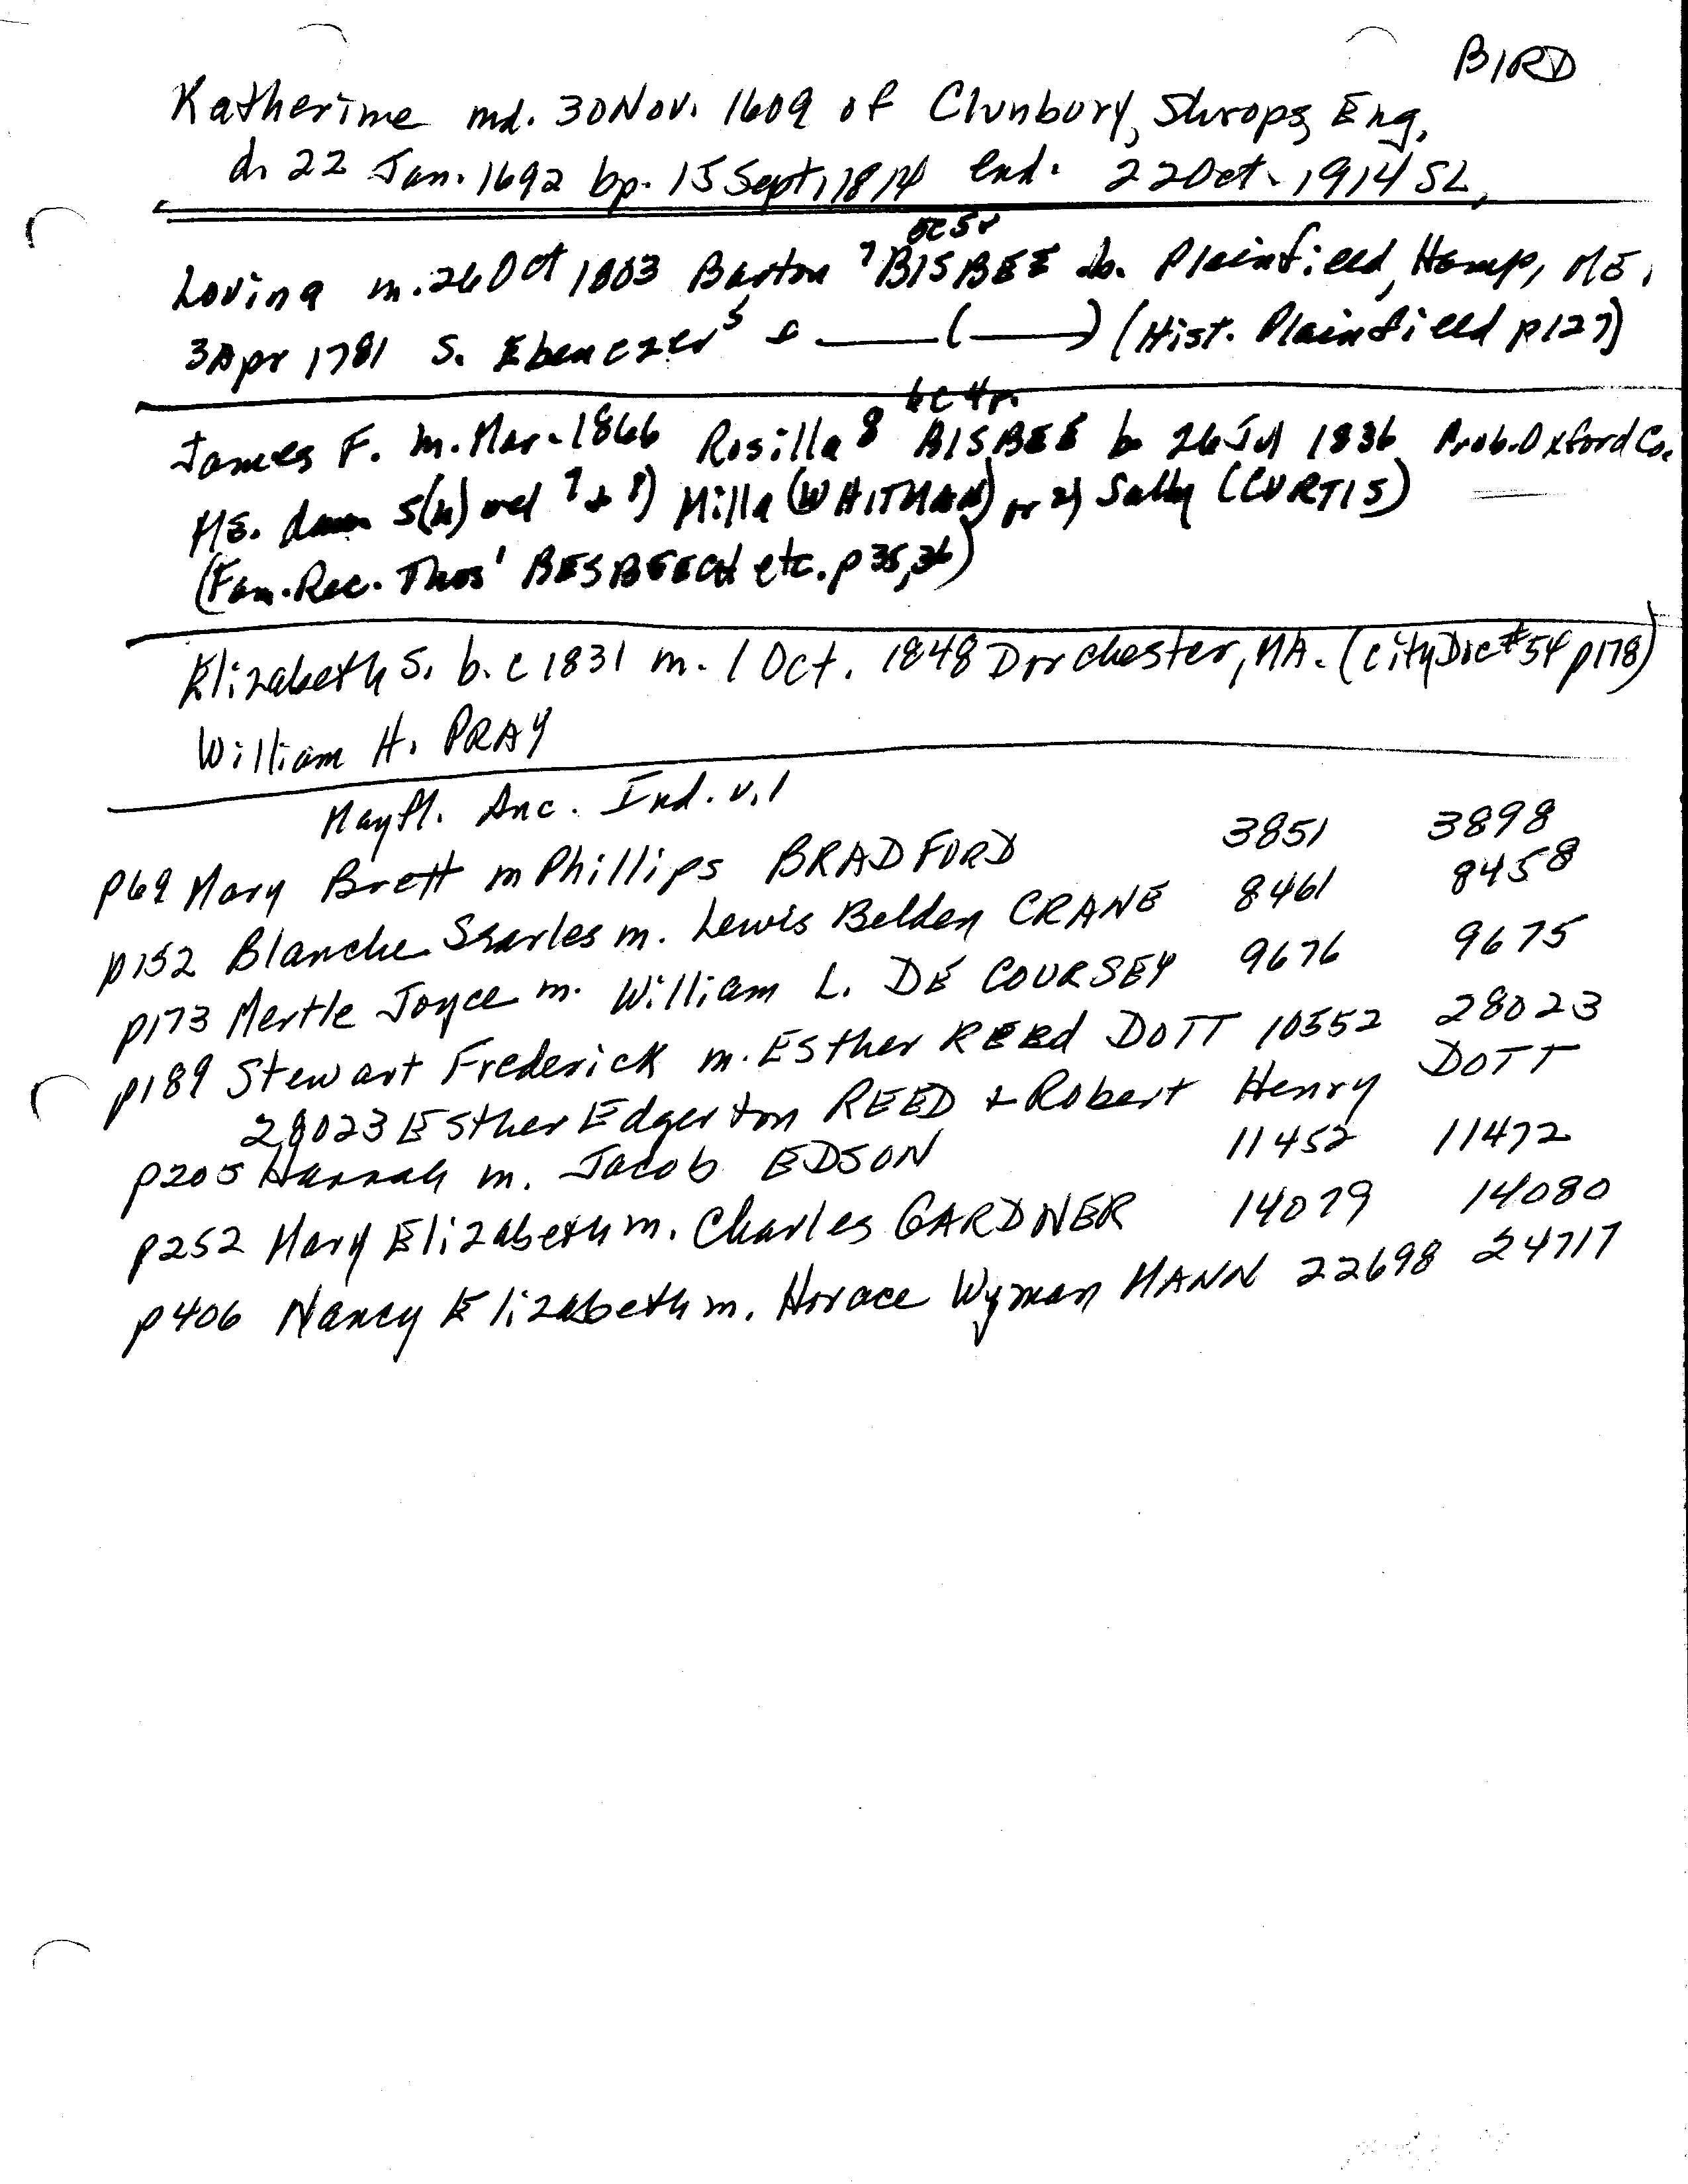 BIRD
Katherine md. 30 Nov. 1609 of Clunbury, Shrops, Eng.
d. 22 Jan. 1692 bp. 15 Sept, 1814 end. 22 Oct. 1914 SL,
5c5r
Lovina m. 26 Oct 1803 Barton 7 BISBEE b. Plainfield, Hamp, ME,
3 Apr 1781 S. Ebenezer 5 + ——— (———) (Hist. Plainfield p127)
6c4r.
James F. m. Mar. 1866 Rosilla 8 BISBEE b 26 Jul 1836 Prob. Oxford Co.
ME. dau S(h) 7 + 1) Milla (WHITMAN) or 2) Sally (CURTIS)
(Fam. Rec. Thos' BESBEECH etc. p 35,36)
Elizabeth S. b. c 1831 m. 1 Oct. 1848 Dorchester, MA. (City Doc #54 p178)
William H. PRAY
Mayfl. Anc. Ind. v.1
p69 Mary Brett m Phillips BRADFORD 3851 3898
p152 Blanche Searles m. Lewis Belden CRANE 8461 8458
p173 Mertle Joyce m. William L. DE COURSEY 9676 9675
p189 Stewart Frederick m. Esther REEd DOTT 10552 28023
28023 Esther Edgerton REED + Robert Henry DOTT
p205 Hannah m. Jacob EDSON 11452 11472
p252 Mary Elizabeth m. Charles GARDNER 14079 14080
p406 Nancy Elizabeth m. Horace Wyman MANN 22698 24717